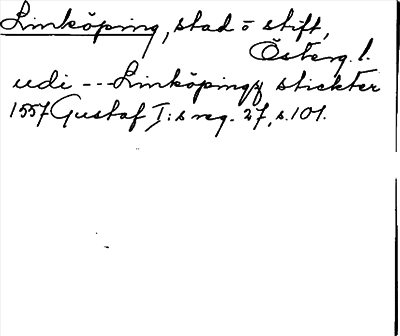 Linköping, stad o stift,
Österg. l.
udi --- Linköpings stickter
1557 Gustaf I:s reg. 27, s. 101.